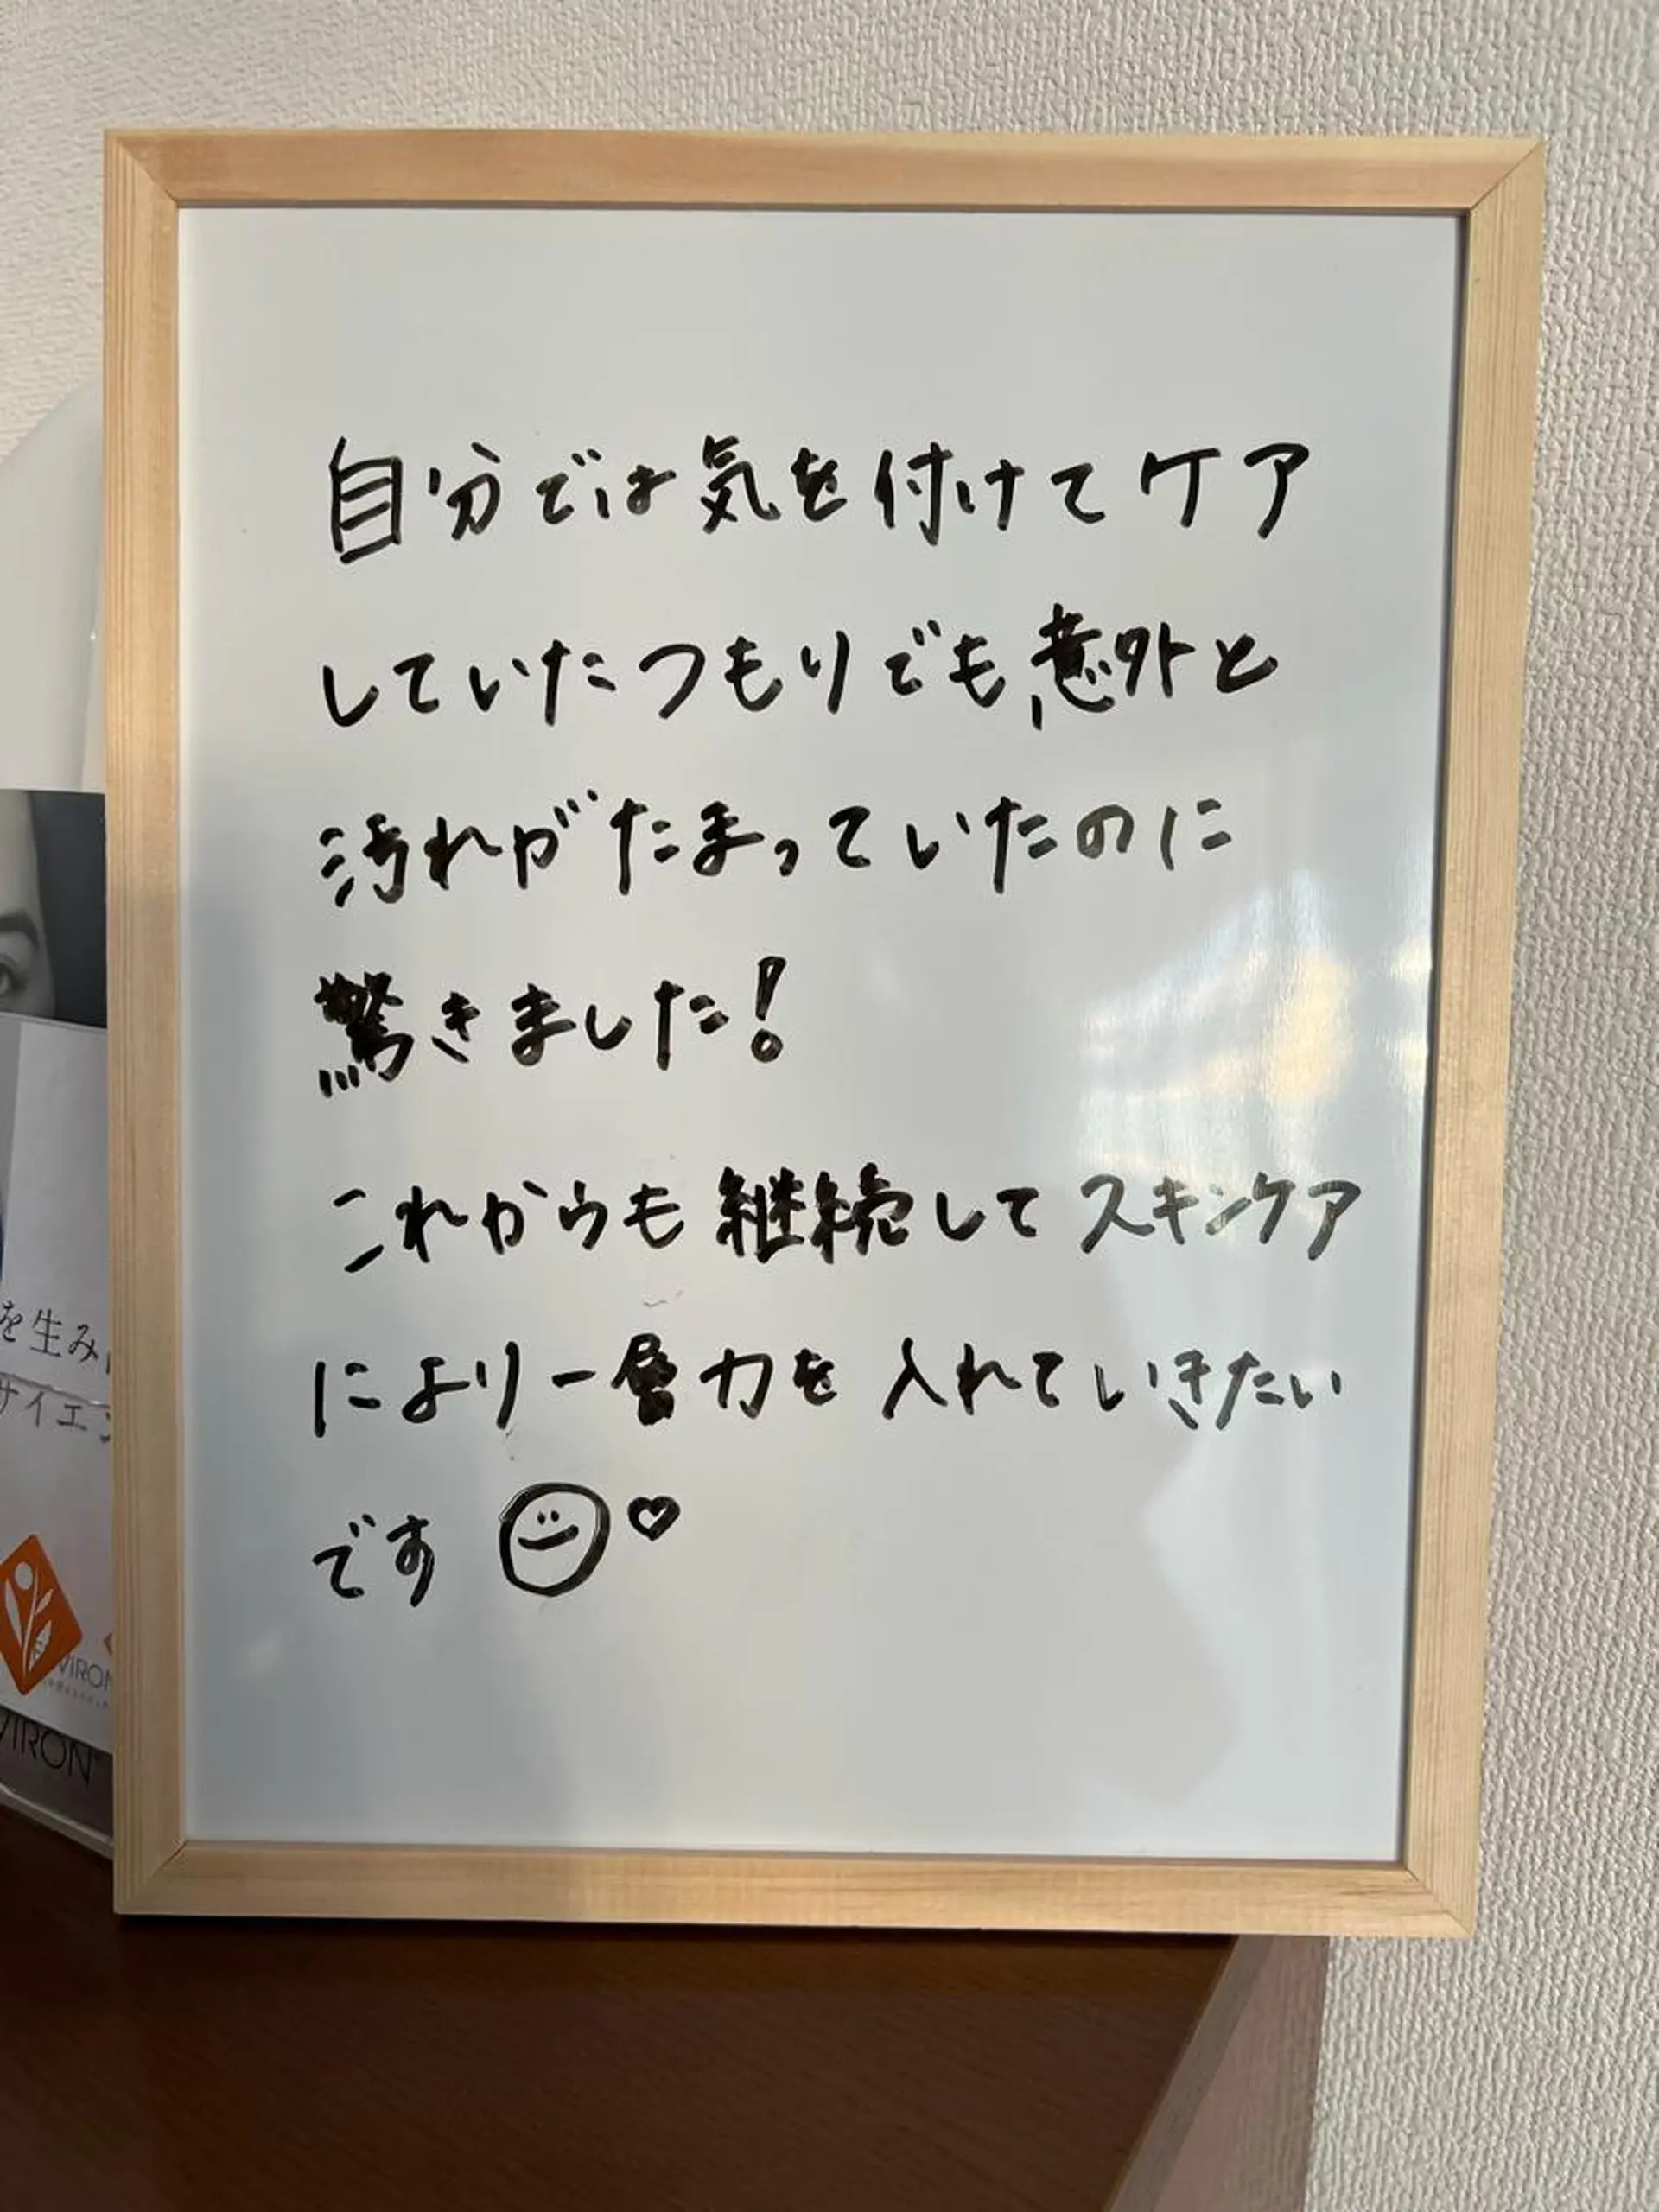 自分では気を付けてケア
していたつもりでも意外と
汚れがたまっていたのに
驚きました!
これからも継続してスキンケア
により一層力を入れていきたい
です ♡
を生み
サイエン
ENVIRON
VIRON